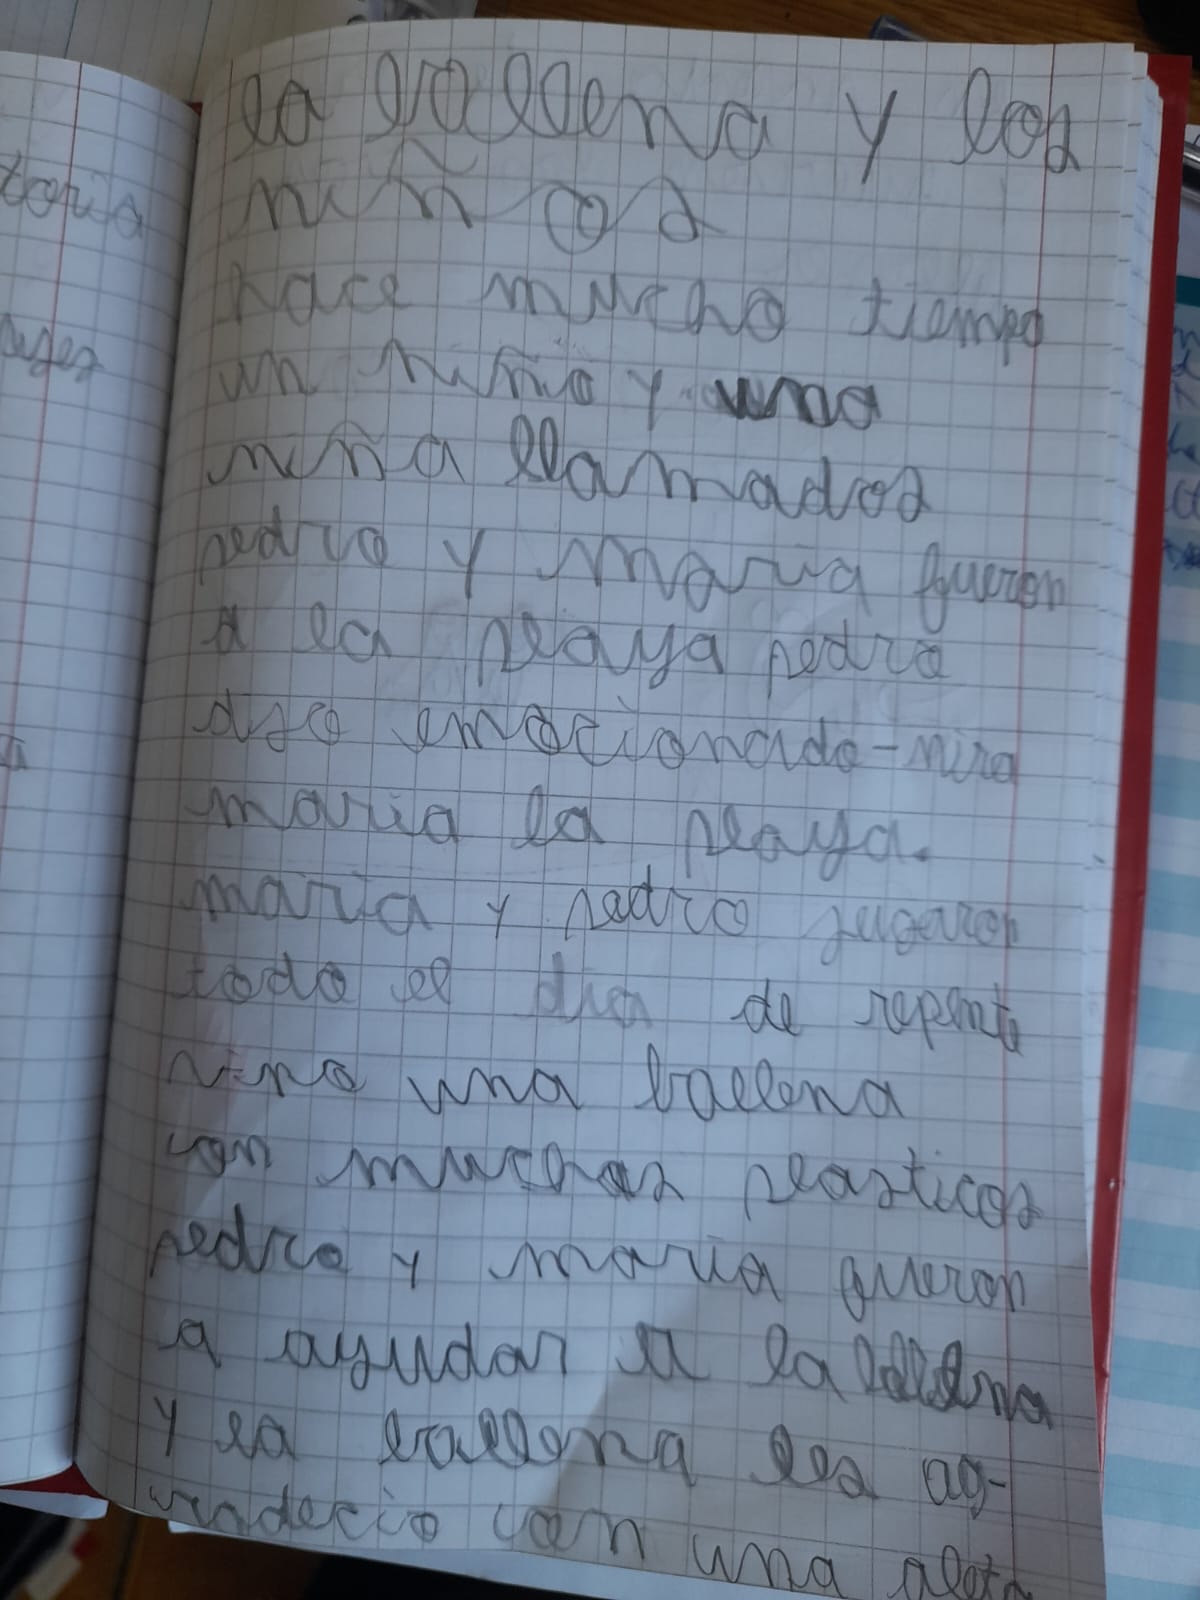 la ballena y los
niños
hace mucho tiempo
un niño y una
niña llamados
pedro y maria fueron
a la playa pedro
emocionado-mira
maria la playa.
maria y pedro jugaron
todo el dia de repente
vino una ballena
con muchas plasticos
pedro y maria fueron
a ayudar a la ballena
y la ballena les ag-
con una aleta
toria